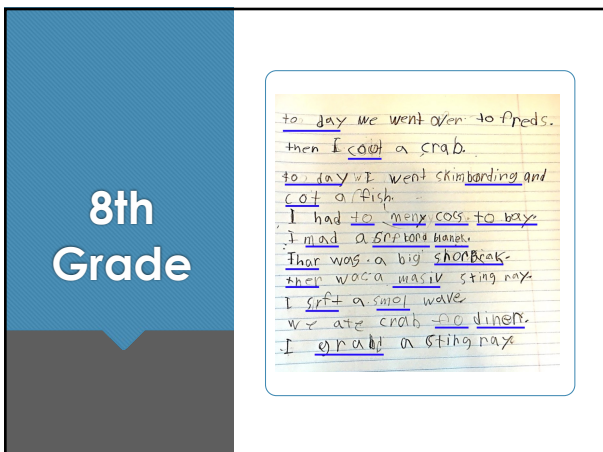 8th
Grade
to day we went over to freds.
then I coot a crab.
to day wE went skimbording and
cot a fish.
I had to meny cocs to bay.
I mad a srf bord blanek.
Thar was a big shorBrak.
ther waca masiv sting ray.
I srft a smol wave
we ate crab fo diner.
I grabd a sting ray